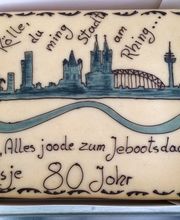 Kölle, du ming Stadt am Rhing...
Alles joode zum Jebootsdaa
sje 80 Johr